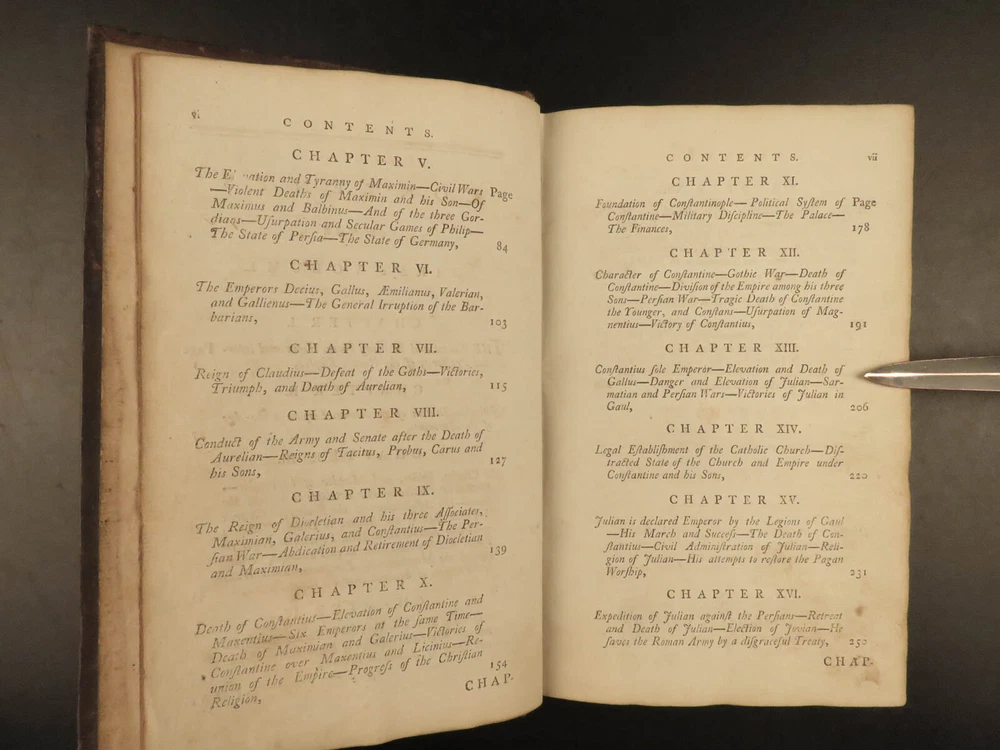 vi
CONTENTS.
CHAPTER V.
The Elevation and Tyranny of Maximin—Civil Wars Page
—Violent Deaths of Maximin and his Son—Of
Maximus and Balbinus—And of the three Gor-
dians—Uſurpation and Secular Games of Philip—
The State of Perſia—The State of Germany, 84
CHAPTER VI.
The Emperors Decius, Gallus, Æmilianus, Valerian,
and Gallienus—The General Irruption of the Bar-
barians, 103
CHAPTER VII.
Reign of Claudius—Defeat of the Goths—Victories,
Triumph, and Death of Aurelian, 115
CHAPTER VIII.
Conduct of the Army and Senate after the Death of
Aurelian—Reigns of Tacitus, Probus, Carus and
his Sons, 127
CHAPTER IX.
The Reign of Diocletian and his three Aſſociates,
Maximian, Galerius, and Conſtantius—The Per-
ſian War—Abdication and Retirement of Diocletian
and Maximian, 139
CHAPTER X.
Death of Conſtantius—Elevation of Conſtantine and
Maxentius—Six Emperors at the ſame Time—
Death of Maximian and Galerius—Victories of
Conſtantine over Maxentius and Licinius—Re-
union of the Empire—Progreſs of the Chriſtian
Religion, 154
CHAP-
CONTENTS. vii
CHAPTER XI.
Foundation of Conſtantinople—Political Syſtem of Page
Conſtantine—Military Diſcipline—The Palace—
The Finances, 178
CHAPTER XII.
Character of Conſtantine—Gothic War—Death of
Conſtantine—Diviſion of the Empire among his three
Sons—Perſian War—Tragic Death of Conſtantine
the Younger, and Conſtans—Uſurpation of Mag-
nentius—Victory of Conſtantius, 191
CHAPTER XIII.
Conſtantius ſole Emperor—Elevation and Death of
Gallus—Danger and Elevation of Julian—Sar-
matian and Perſian Wars—Victories of Julian in
Gaul, 206
CHAPTER XIV.
Legal Eſtabliſhment of the Catholic Church—Diſ-
tracted State of the Church and Empire under
Conſtantine and his Sons, 220
CHAPTER XV.
Julian is declared Emperor by the Legions of Gaul
—His March and Succeſs—The Death of Con-
ſtantius—Civil Adminiſtration of Julian—Reli-
gion of Julian—His attempts to reſtore the Pagan
Worſhip, 231
CHAPTER XVI.
Expedition of Julian againſt the Perſians—Retreat
and Death of Julian—Election of Jovian—He
ſaves the Roman Army by a diſgraceful Treaty, 250
CHAP-